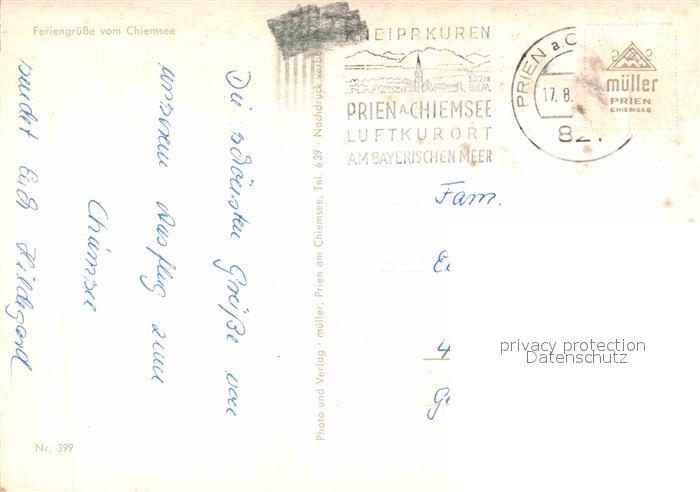 Feriengrüße vom Chiemsee
Die schönsten Grüße von
unserem Ausflug zum
Chiemsee
sendet Euch Hildegard
Nr. 399
Photo und Verlag · müller, Prien am Chiemsee, Tel. 639 · Nachdruck verbo
KNEIPPKUREN
532m
ü.d.M.
PRIEN A. CHIEMSEE
LUFTKURORT
AM BAYERISCHEN MEER
PRIEN a. C
17. 8.
821
müller
PRIEN
CHIEMSEE
Fam.
4
privacy protection
Datenschutz